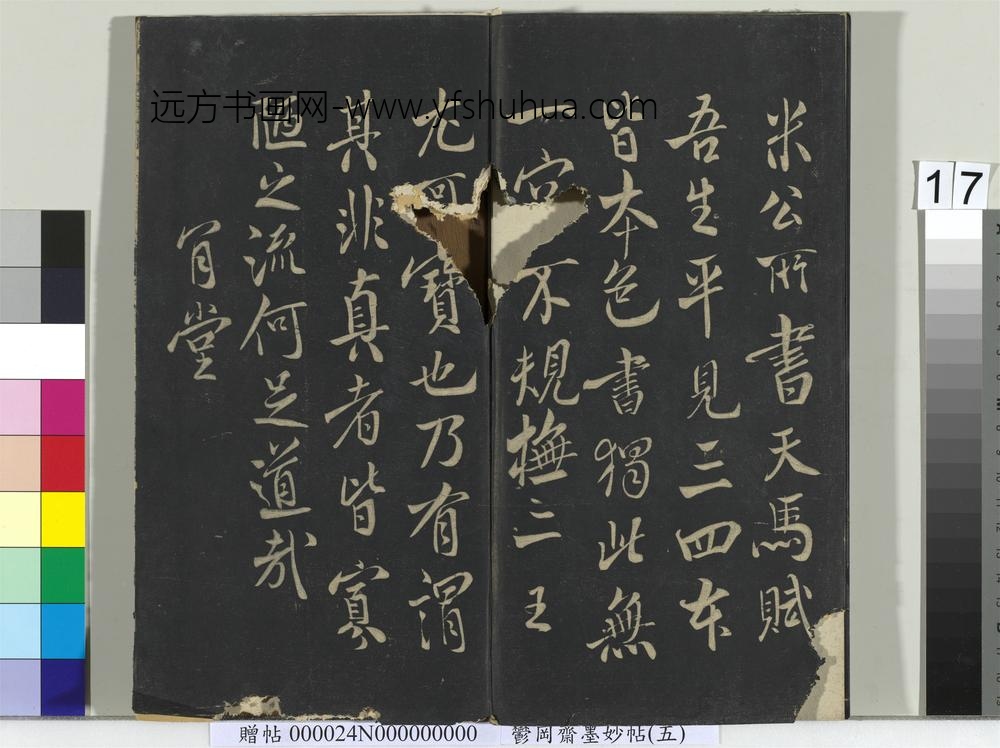 远方书画网-www.yfshuhua.com
米公所書天馬賦
吾生平見三四本
皆本色書獨此無
一字不規橅二王
尤可寶也乃有謂
其非真者皆寡
陋之流何足道哉
肯堂
17
贈帖 000024N000000000 鬱岡齋墨妙帖(五)